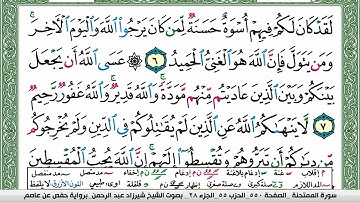 لَقَدْ كَانَ لَكُمْ فِيهِمْ أُسْوَةٌ حَسَنَةٌ لِّمَن كَانَ يَرْجُوا۟ ٱللَّهَ وَٱلْيَوْمَ ٱلْـَٔاخِرَ ۚ
وَمَن يَتَوَلَّ فَإِنَّ ٱللَّهَ هُوَ ٱلْغَنِىُّ ٱلْحَمِيدُ ٦ ۞ عَسَى ٱللَّهُ أَن يَجْعَلَ
بَيْنَكُمْ وَبَيْنَ ٱلَّذِينَ عَادَيْتُم مِّنْهُم مَّوَدَّةً ۚ وَٱللَّهُ قَدِيرٌ ۚ وَٱللَّهُ غَفُورٌ رَّحِيمٌ
٧ لَّا يَنْهَىٰكُمُ ٱللَّهُ عَنِ ٱلَّذِينَ لَمْ يُقَـٰتِلُوكُمْ فِى ٱلدِّينِ وَلَمْ يُخْرِجُوكُم
مِّن دِيَـٰرِكُمْ أَن تَبَرُّوهُمْ وَتُقْسِطُوٓا۟ إِلَيْهِمْ ۚ إِنَّ ٱللَّهَ يُحِبُّ ٱلْمُقْسِطِينَ
سورة الممتحنة الصفحة ٥٥٠ الحزب ٥٥ الجزء ٢٨ بصوت الشيخ شيرزاد عبد الرحمن برواية حفص عن عاصم